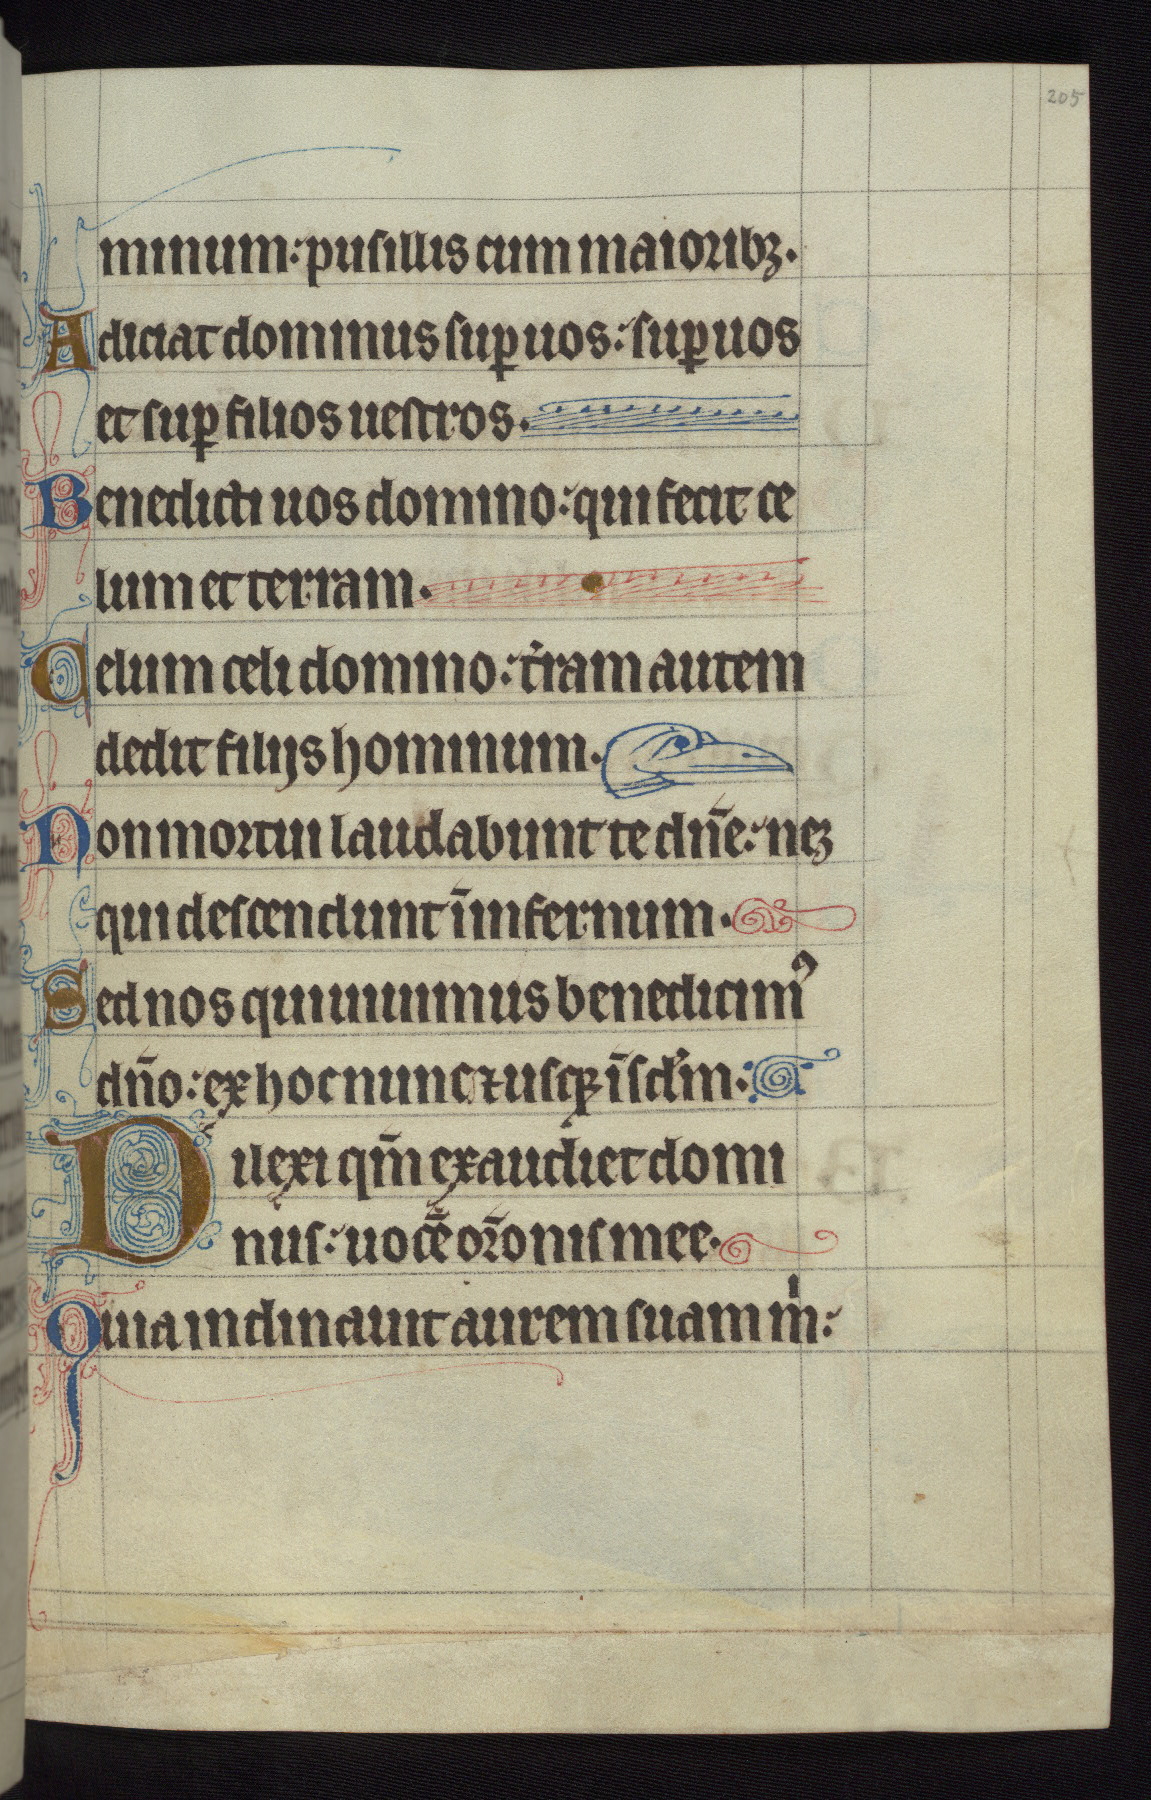 205
minum: pusillis cum maioribꝫ.
Adiciat dominus suꝑ uos: suꝑ uos
et suꝑ filios uestros.
Benedicti uos domino: qui fecit ce
lum et terram.
Celum celi domino: t̃ram autem
dedit filijs hominum.
Non mortui laudabunt te dn̄e: neqꝫ
qui descendunt ī infernum.
Sed nos qui uiuimus benedicimꝰ
dn̄o: ex hoc nunc ⁊ usqꝫ ī sc̄lm.
Dilexi qm̄ exaudiet domi
nus: uocē or̄onis mee.
Quia inclinauit aurem suam m̄: